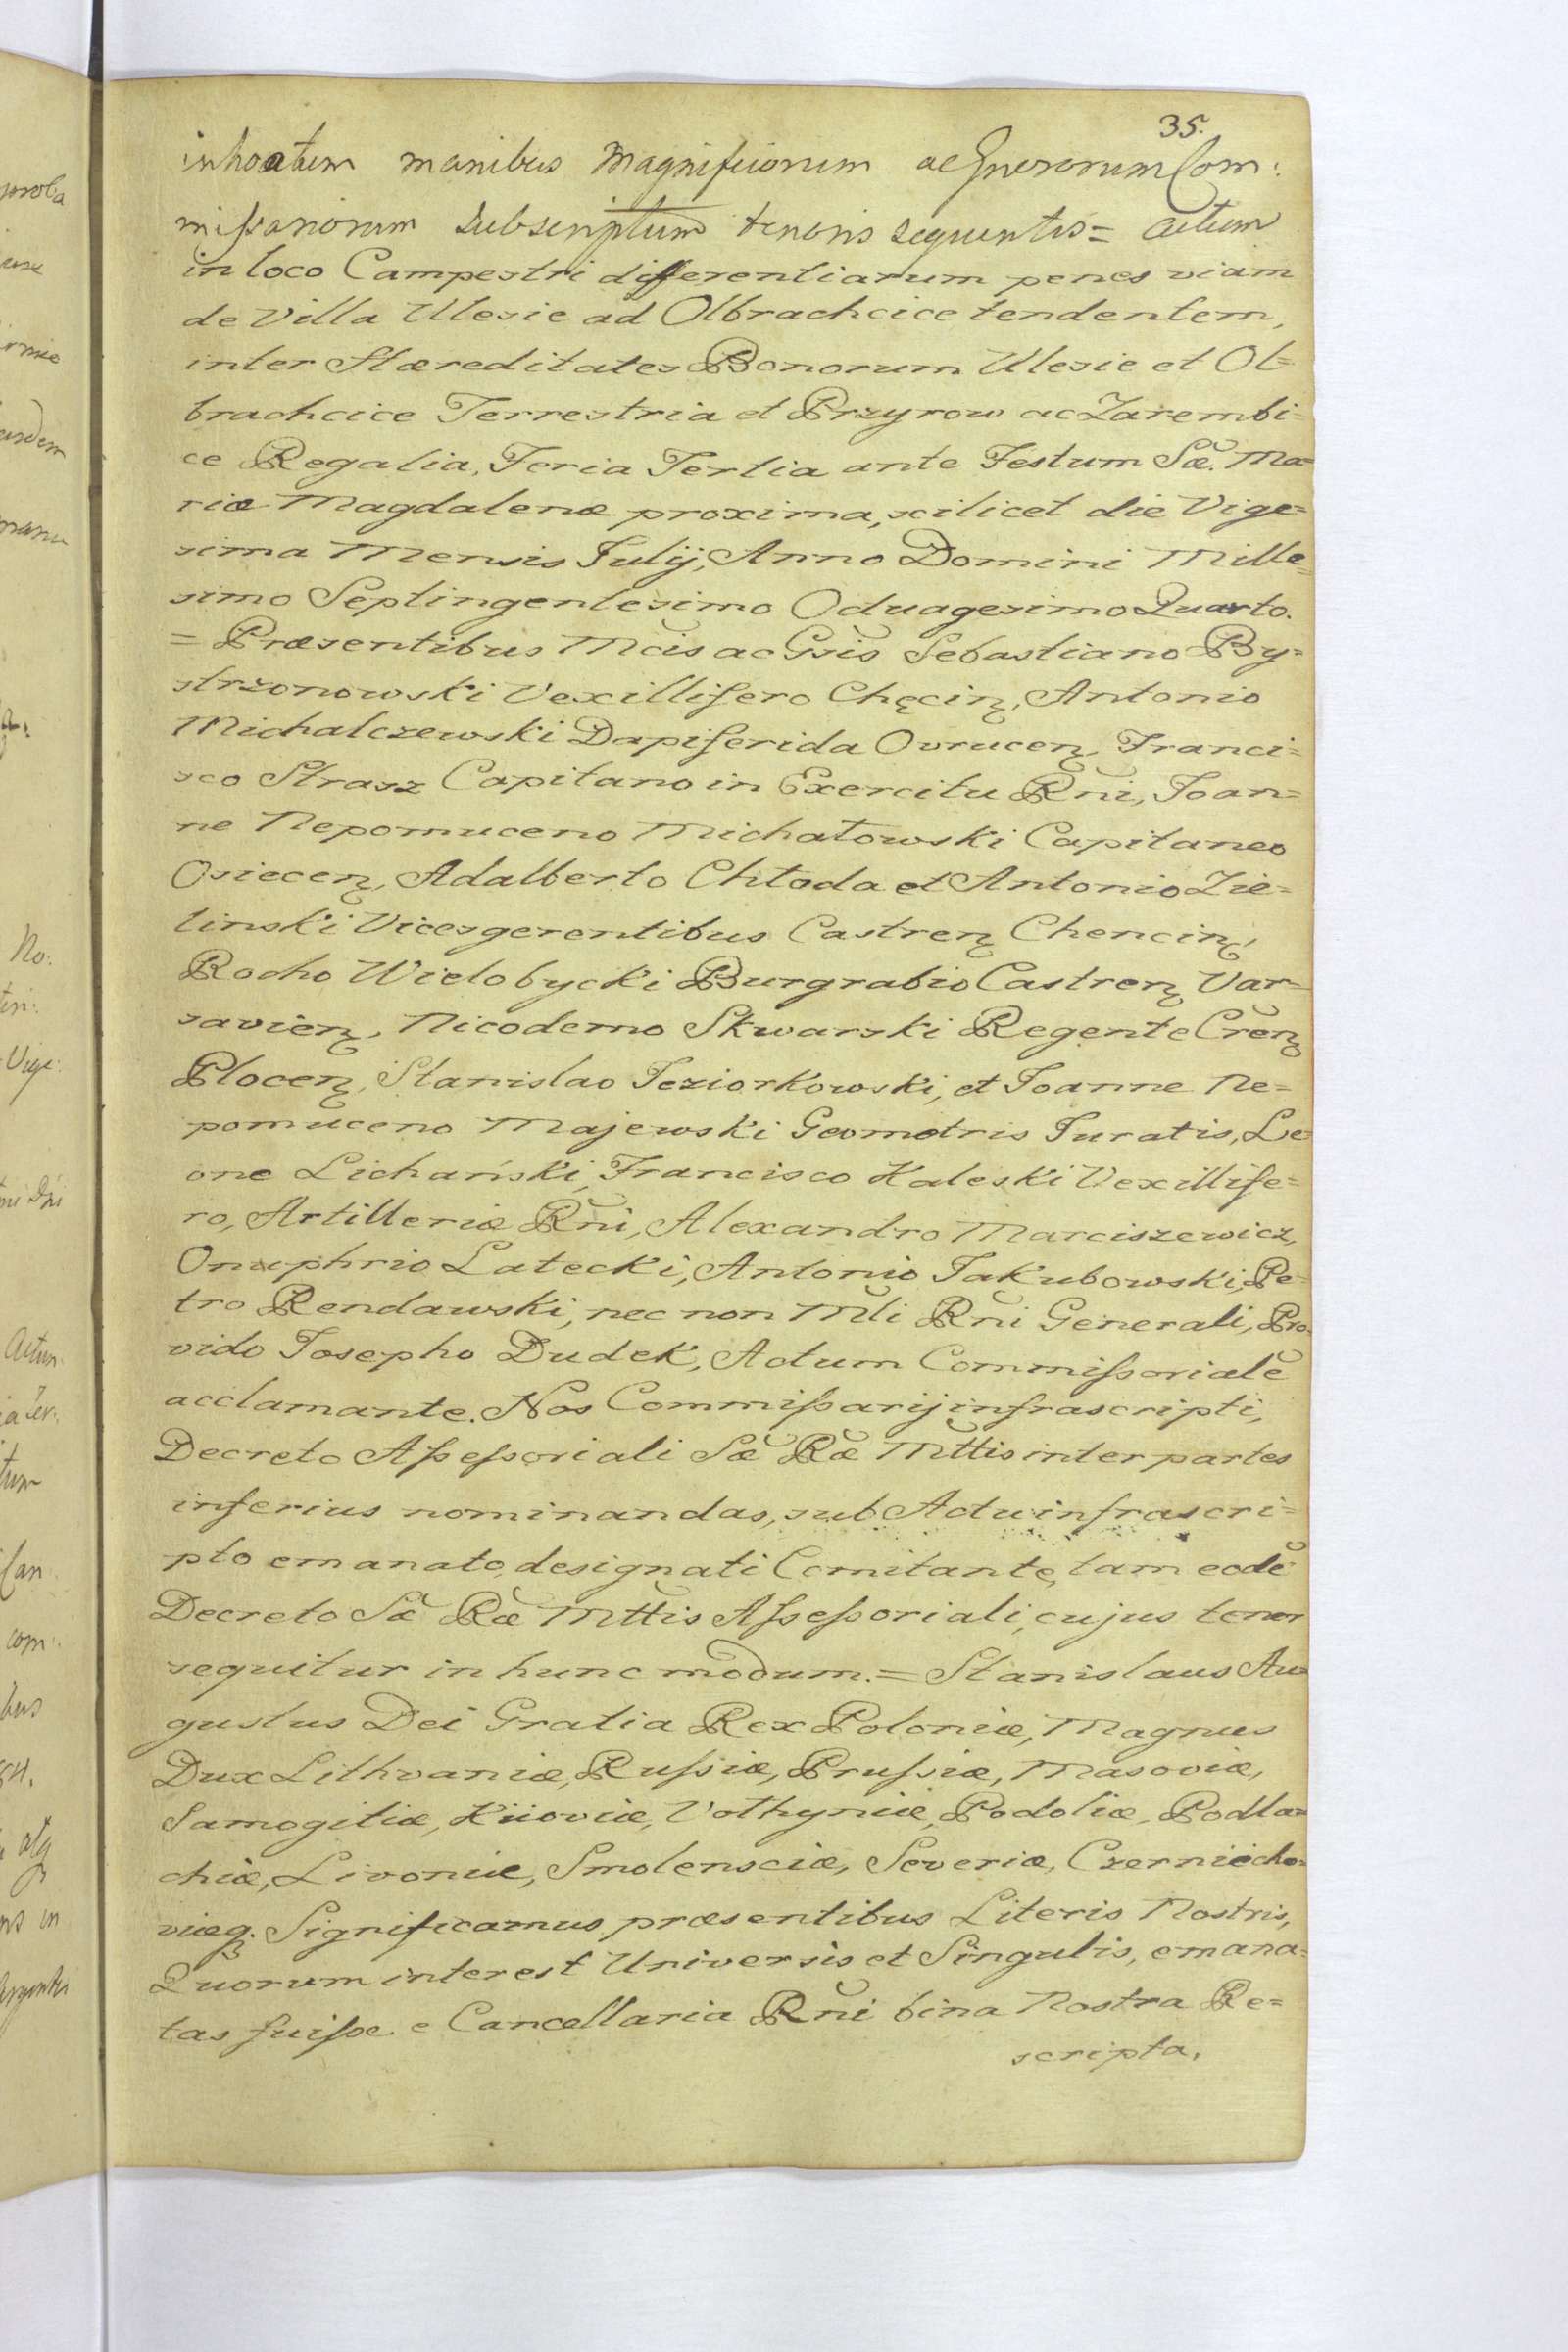 35.
inhoatum manibus Magnificorum ac Gnerorum Com:
mißariorum subscriptum tenoris sequentis = Actum
in loco Campestri differentiarum penes viam
de Villa Ulesie ad Olbrachcice tendentem,
inter Hæreditates Bonorum Ulesie et Ol=
brachcice Terrestria et Przyrow ac Zarembi=
ce Regalia, Feria Tertia ante Festum Sæ. Ma=
riæ Magdalenæ proxima, scilicet die Vige=
sima Mensis Julij, Anno Domini Mille=
simo Septingentesimo Octuagesimo Quarto.
= Præsentibus Mcis ac Gsis Sebastiano By=
strzonowski Vexillifero Chęcinȝ, Antonio
Michalczewski Dapiferida Ovrucenȝ, Franci=
sco Strasz Capitano in Exercitu Rni, Joan=
ne Nepomuceno Michałowski Capitaneo
Osiecenȝ, Adalberto Chłoda et Antonio Zie=
linski Vicesgerentibus Castrenȝ Chencinȝ,
Rocho Wielobycki Burgrabio Castrenȝ Var=
savienȝ, Nicodemo Skwarski Regente Crenȝ
Plocenȝ, Stanislao Jeziorkowski, et Joanne Ne=
pomuceno Majewski Geometris Juratis, Le
one Lichański, Francisco Kaleski Vexillife=
ro, Artilleriæ Rni, Alexandro Marciszewicz,
Onuphrio Latecki, Antonio Jakubowski, Pe=
tro Rendawski, nec non Mli Rni Generali, Pro
vido Josepho Dudek, Actum Commißoriale
acclamante. Nos Commißarij infrascripti,
Decreto Aßeßoriali Sæ Ræ Mttis inter partes
inferius nominandas, sub Actu infrascri=
pto emanato, designati Comitante, tam eodē
Decreto Sæ Ræ Mttis Aßeßoriali, cujus tenor
sequitur in hunc modum. = Stanislaus Au=
gustus Dei Gratia Rex Poloniæ, Magnus
Dux Lithvaniæ, Rußiæ, Prußiæ, Masoviæ,
Samogitiæ, Kiioviæ, Volhyniæ, Podoliæ, Podla=
chiæ, Livoniæ, Smolensciæ, Severiæ, Czerniecho=
viæqȝ. Significamus præsentibus Literis Nostris,
Quorum interest Universis et Singulis, emana=
tas fuiße. e Cancellaria Rni bina Nostra Re=
scripta,